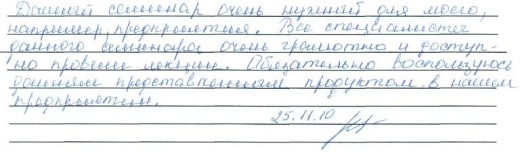 Данный семинар очень нужный для моего,
например, предприятия. Все специалисты
данного семинара очень грамотно и доступ-
но провели лекции. Обязательно воспользуюсь
данным представленным продуктом в нашем
предприятии.
25.11.10